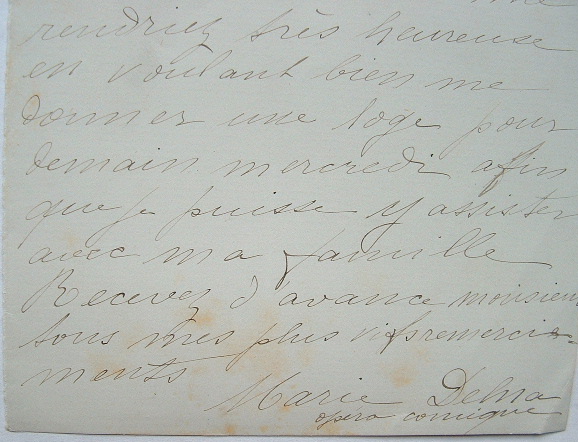 me
rendriez très heureuse
en voulant bien me
donner une loge pour
demain mercredi afin
que je puisse y assister
avec ma famille
Recevez d'avance monsieur
tous mes plus vifs remercie-
ments
Marie Delna
opéra comique